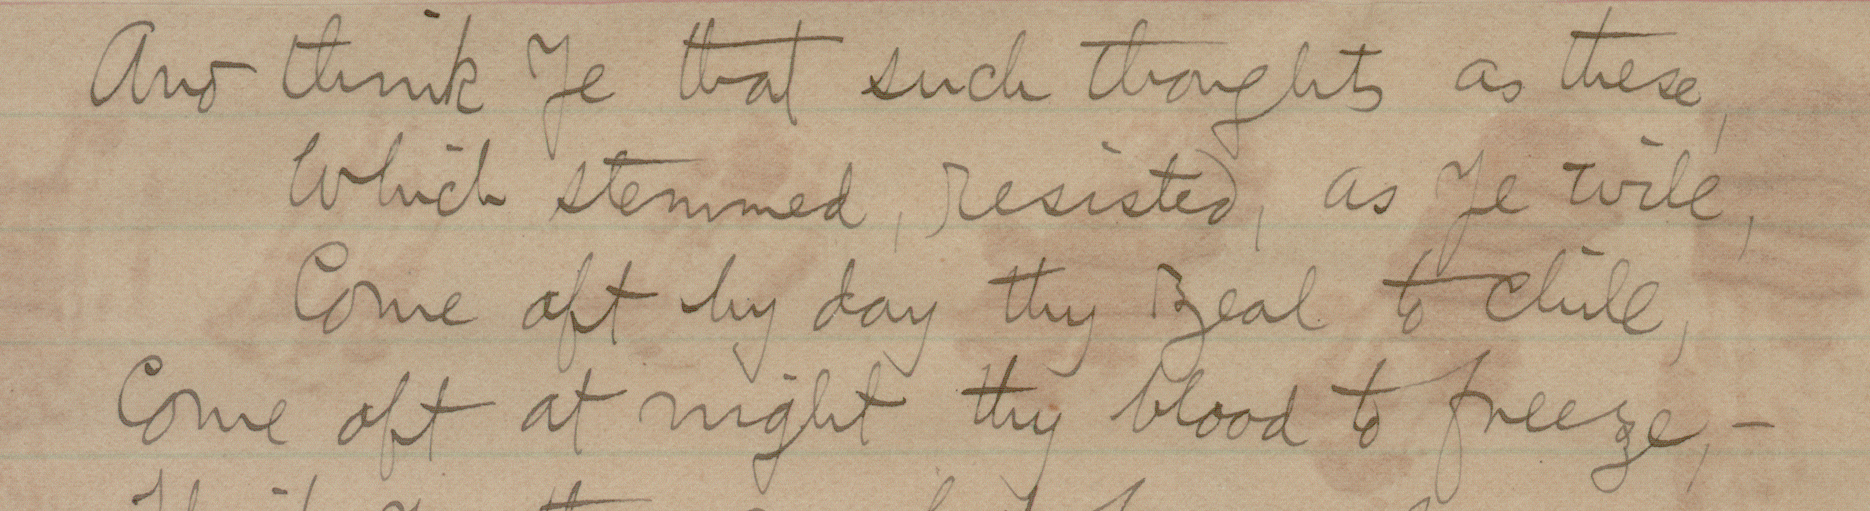 And think Ye that such thoughts as these,
Which stemmed, resisted, as Ye will,
Come oft by day thy zeal to chill,
Come oft at night thy blood to freeze, -